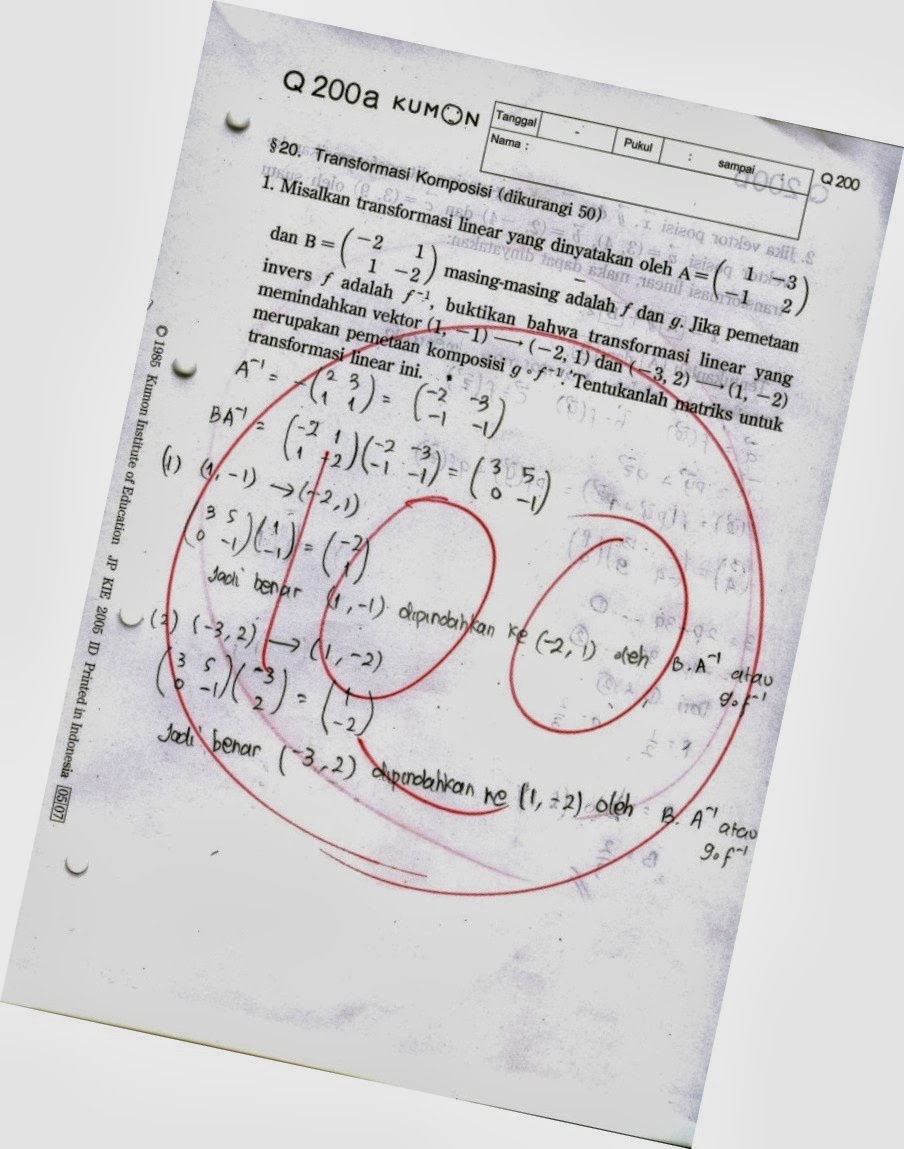 Q 200a KUMON
Tanggal - Pukul : sampai :
Nama :
Q 200
§20. Transformasi Komposisi (dikurangi 50)
1. Misalkan transformasi linear yang dinyatakan oleh A = ( 1 −3
−1 2 )
dan B = ( −2 1
1 −2 ) masing-masing adalah f dan g. Jika pemetaan
invers f adalah f⁻¹, buktikan bahwa transformasi linear yang
memindahkan vektor (1, −1) ⟶ (−2, 1) dan (−3, 2) ⟶ (1, −2)
merupakan pemetaan komposisi g∘f⁻¹. Tentukanlah matriks untuk
transformasi linear ini.
A⁻¹ = −( 2 3
1 1 ) = ( −2 −3
−1 −1 )
BA⁻¹ = ( −2 1
1 −2 )( −2 −3
−1 −1 ) = ( 3 5
0 −1 )
(1) (1, −1) → (−2, 1)
( 3 5
0 −1 )( 1
−1 ) = ( −2
1 )
Jadi benar (1, −1) dipindahkan ke (−2, 1) oleh B.A⁻¹ atau
g∘f⁻¹
(2) (−3, 2) ⟶ (1, −2)
( 3 5
0 −1 )( −3
2 ) = ( 1
−2 )
Jadi benar (−3, 2) dipindahkan ke (1, −2) oleh B.A⁻¹ atau
g∘f⁻¹
100
© 1985 Kumon Institute of Education JP KIE 2005 ID Printed in Indonesia 05/07